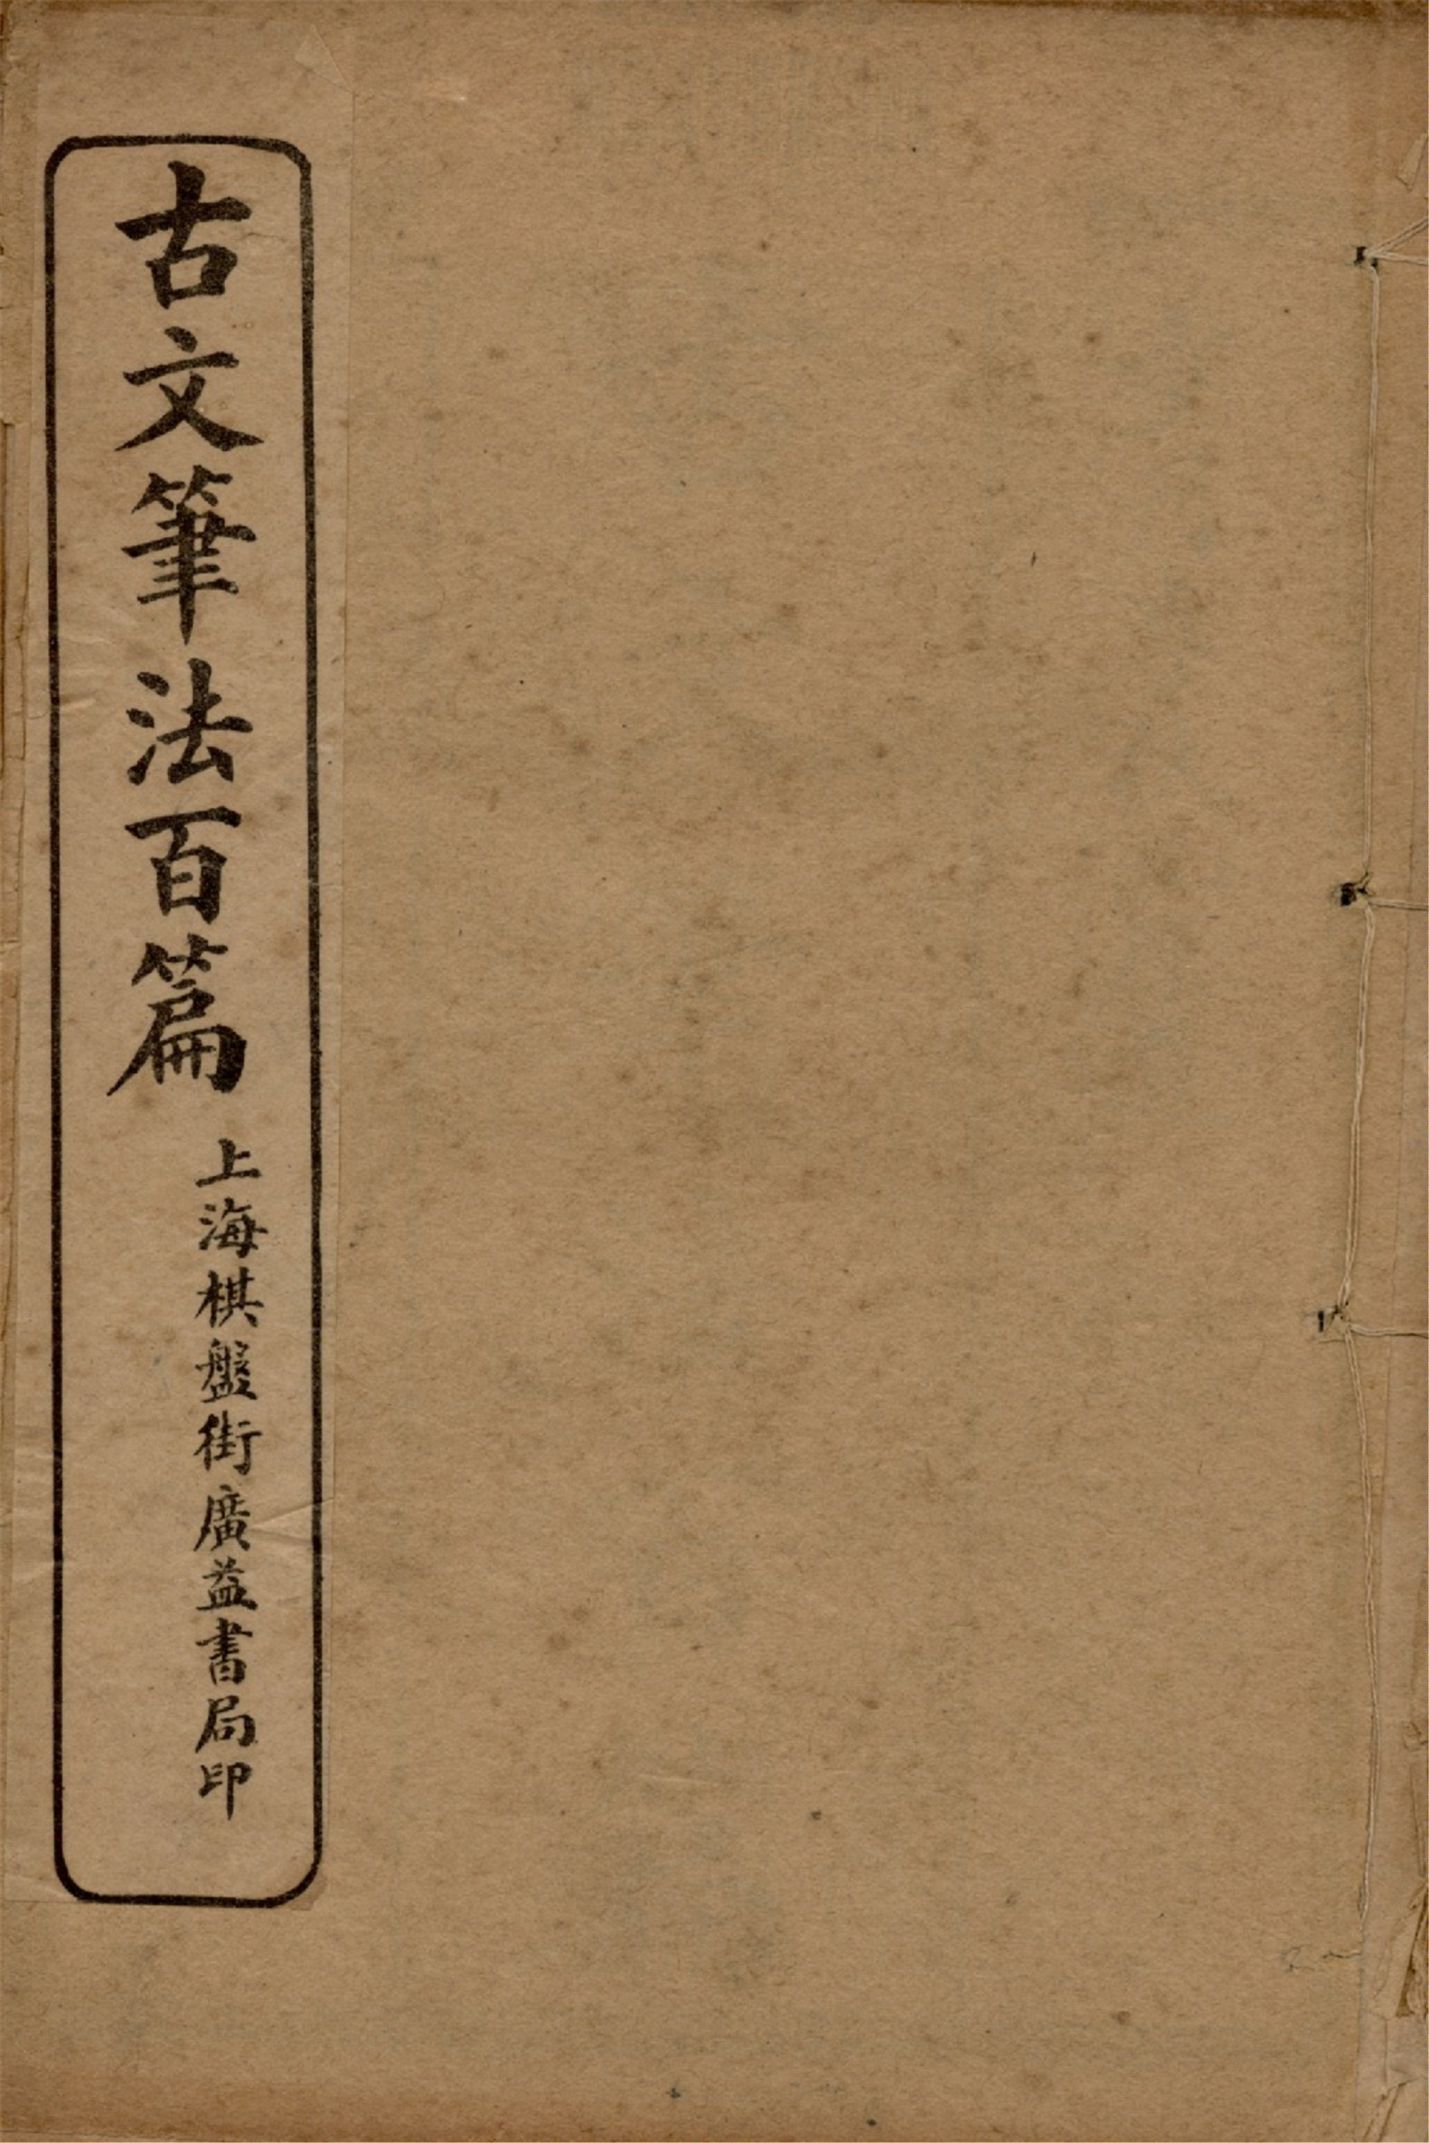 古文筆法百篇
上海棋盤街廣益書局印